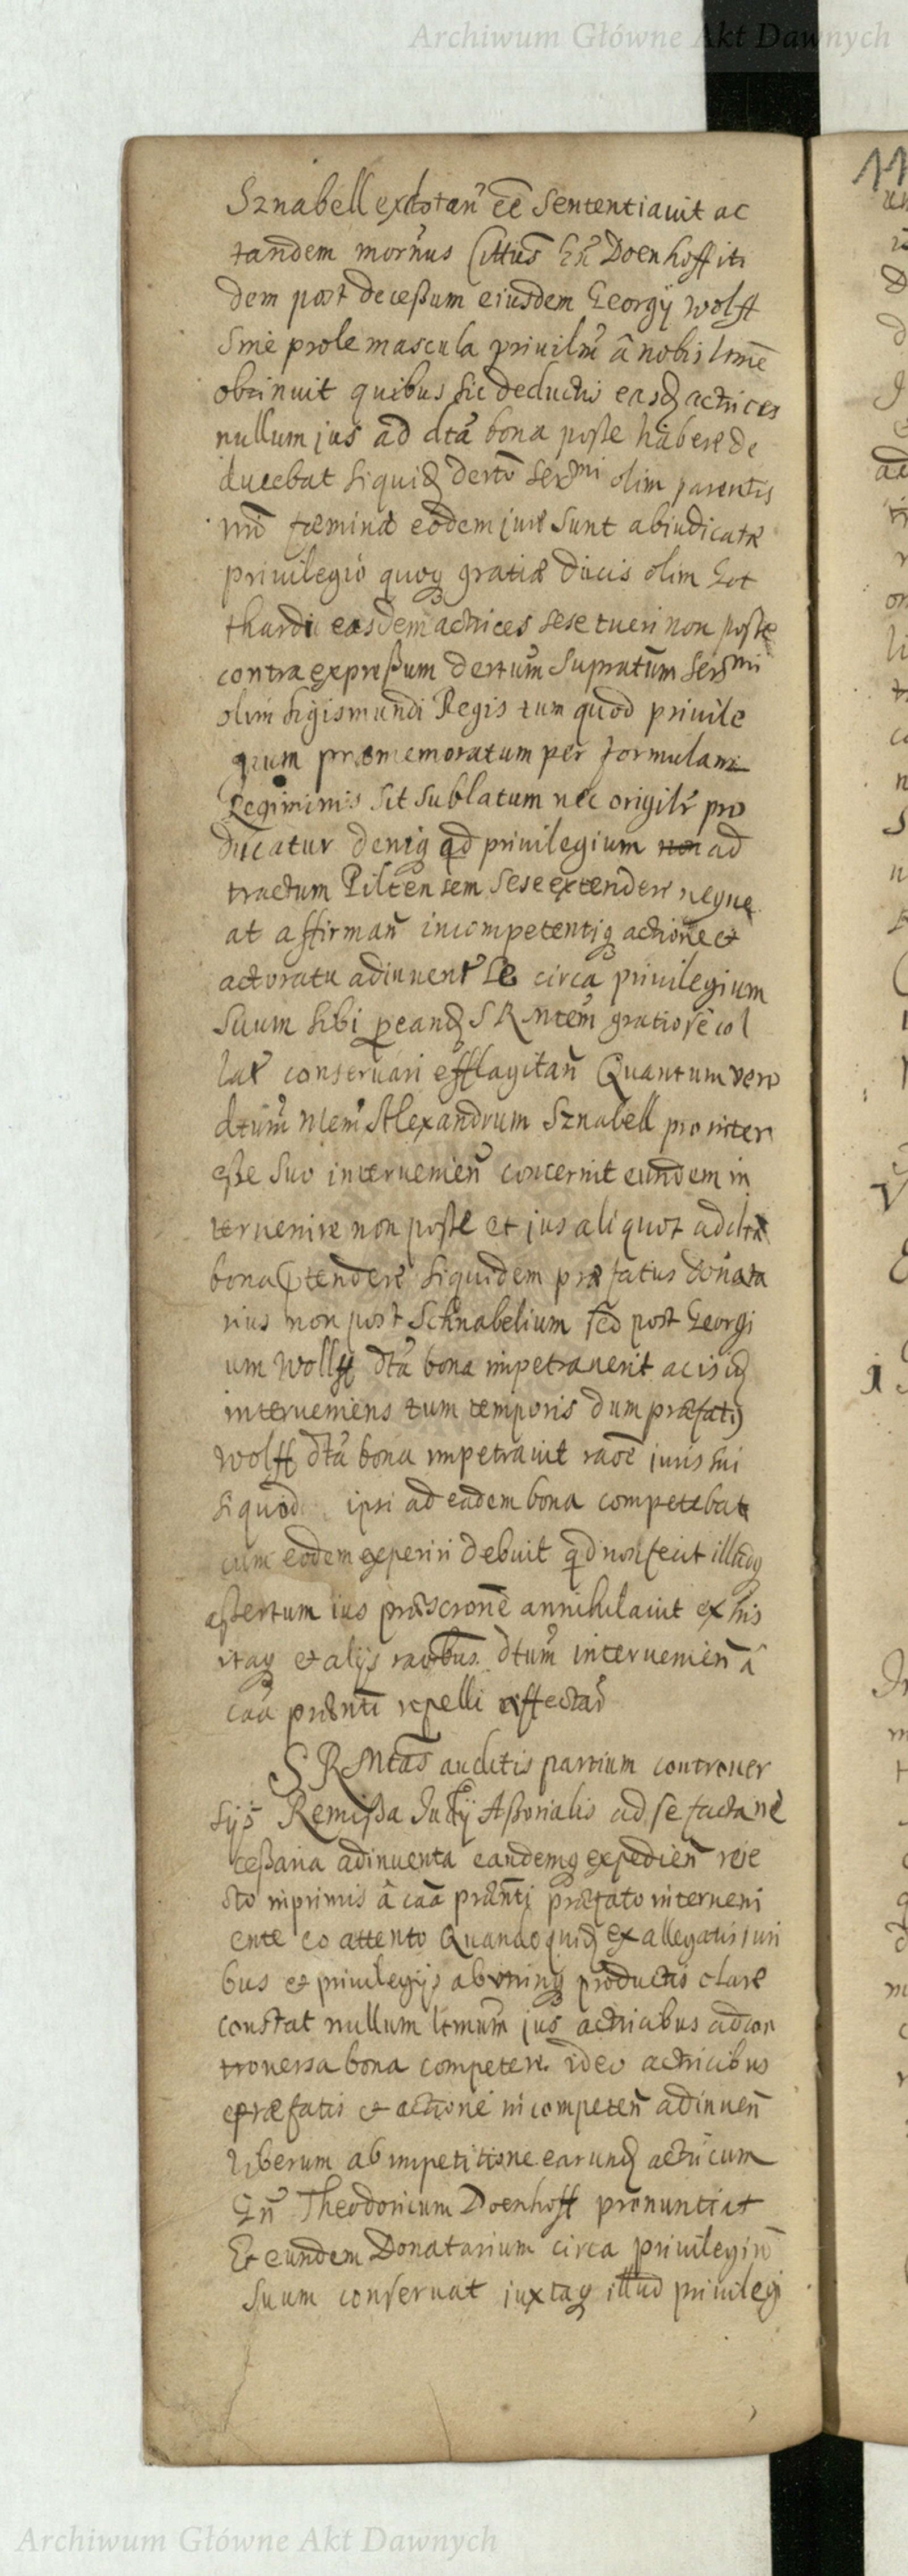 Archiwum Główne Akt Dawnych
Sznabell exdotan̄ eē Sententiauit ac
tandem mornus Cittus Gn̄ Doenhoff iti
dem post deceßum eiusdem Georgÿ Wolff
Sine prole mascula priuilm̄ â nobis ltme
obtinuit quibus sic deductis easq actrices
nullum jus ad dta bona poße habere de
ducebat siquiq dertō Serᵐⁱ olim parentis
nr̄i fæminæ eodem jure Sunt abiudicatæ
priuilegio quoq gratiæ ducis olim Got
thardi easdem actrices sese tueri non poße
contra expreßum dertum Supratūm Serᵐⁱ
olim Sigismundi Regis tum quod priuile
gium præmemoratum per formulam
Regiminis Sit Sublatum nec origilr pro
ducatur deniq qd priuilegium non ad
tractum Pilten sem Sese extendere neque
at affirman̄ incompetentiq actione et
actoratu adinuent Se circa priuilegium
Suum Sibi peandq S R Mtem gratiose col
lat conseruari efflagitan̄ Quantum vero
dtum̄ Mem̄ Alexandrum Sznabell pro inter
eße Suo interuenien̄ concernit eundem in
teruenire non poße et jus aliquot ad dta
bona Ptendere Siquidem præfatus dona ta
rius non post Schnabelium sed post Georgi
um Wolff dta bona impetrauerit ac isq
interueniens tum temporis dum præfatq
Wolff dta bona impetrauit raoe juris sui
Siquod ipsi ad eadem bona competebat
cum eodem experiri debuit qd non fecit illudq
aßertum ius præscrone annihilauit ex his
itaq et alijs raobus dtum̄ interuenien̄ â
caā prænti repelli affectat
S R Mtas auditis partium controuer
sijs Remißa Judÿ Aßorialis ad se facta ne
ceßaria adinuenta eandemq expedien̄ reie
cto inprimis â caā prænti præfato interueni
ente eo attento Quandoquiq ex allegatis juri
bus et priuilegijs abutrinq productis clare
constat nullum ltmum jus actricibus ad con
trouersa bona competere ideo actricibus
præfatis et actione incompeten̄ adinuen̄
liberum ab impetitione earunq actricum
Gn̄ Theodoricum Doenhoff pronuntiat
Et eundem Donatarium circa priuilegiu
Suum conseruat juxtaq illud priuilegi
Archiwum Główne Akt Dawnych